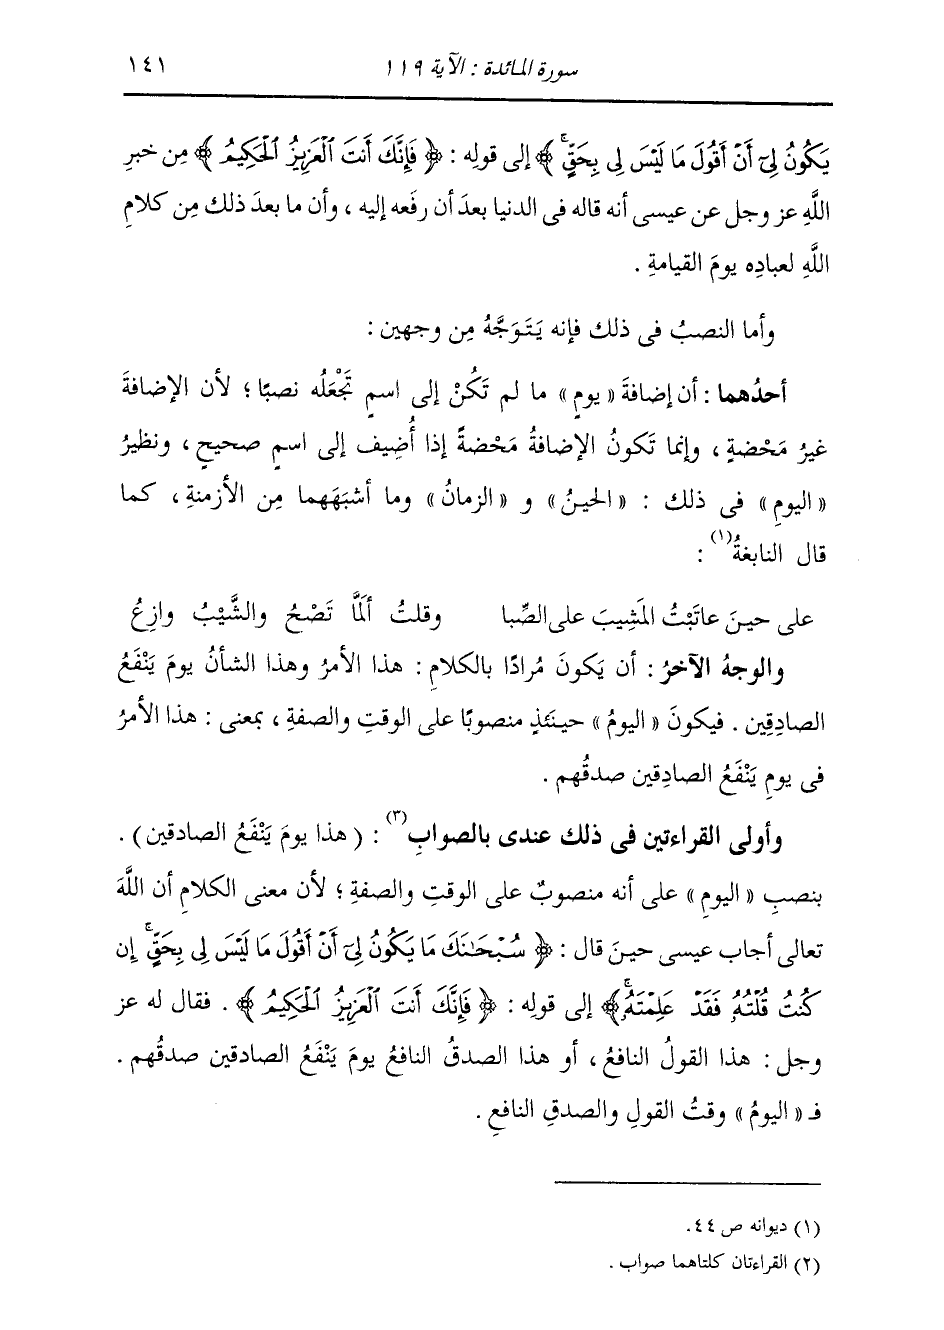 سورة المائدة : الآية ١١٩ ١٤١
يَكُونُ لِىٓ أَنْ أَقُولَ مَا لَيْسَ لِى بِحَقٍّ ۚ ﴾ إلى قولِه : ﴿ فَإِنَّكَ أَنتَ ٱلْعَزِيزُ ٱلْحَكِيمُ ﴾ مِن خبرِ
اللَّهِ عز وجل عن عيسى أنه قاله فى الدنيا بعدَ أن رفَعه إليه ، وأن ما بعدَ ذلك مِن كلامِ
اللَّهِ لعبادِه يومَ القيامةِ .
وأما النصبُ فى ذلك فإنه يَتَوَجَّهُ مِن وجهين :
أحدُهما : أن إضافةَ « يومٍ » ما لم تَكُنْ إلى اسمٍ تَجْعَلُه نصبًا ؛ لأن الإضافةَ
غيرُ مَحْضةٍ ، وإنما تَكونُ الإضافةُ مَحْضةً إذا أُضِيف إلى اسمٍ صحيحٍ ، ونظيرُ
« اليومِ » فى ذلك : « الحينُ » و « الزمانُ » وما أشبَهَهما مِن الأزمنةِ ، كما
قال النابغةُ(١) :
على حينَ عاتَبْتُ المَشِيبَ على الصِّبا وقلتُ أَلَمَّا تَصْحُ والشَّيْبُ وازِعُ
والوجهُ الآخرُ : أن يَكونَ مُرادًا بالكلامِ : هذا الأمرُ وهذا الشأنُ يومَ يَنْفَعُ
الصادِقِين . فيكونَ « اليومُ » حينَئذٍ منصوبًا على الوقتِ والصفةِ ، بمعنى : هذا الأمرُ
فى يومِ يَنْفَعُ الصادِقين صدقُهم .
وأولى القراءتين فى ذلك عندى بالصوابِ(٣) : ( هذا يومَ يَنْفَعُ الصادقين ) .
بنصبِ « اليومِ » على أنه منصوبٌ على الوقتِ والصفةِ ؛ لأن معنى الكلامِ أن اللَّهَ
تعالى أجاب عيسى حينَ قال : ﴿ سُبْحَـٰنَكَ مَا يَكُونُ لِىٓ أَنْ أَقُولَ مَا لَيْسَ لِى بِحَقٍّ ۚ إِن
كُنتُ قُلْتُهُۥ فَقَدْ عَلِمْتَهُۥ ۚ ﴾ إلى قولِه : ﴿ فَإِنَّكَ أَنتَ ٱلْعَزِيزُ ٱلْحَكِيمُ ﴾ . فقال له عز
وجل : هذا القولُ النافعُ ، أو هذا الصدقُ النافعُ يومَ يَنْفَعُ الصادقين صدقُهم .
فـ « اليومُ » وقتُ القولِ والصدقِ النافعِ .
(١) ديوانه ص ٤٤.
(٢) القراءتان كلتاهما صواب .